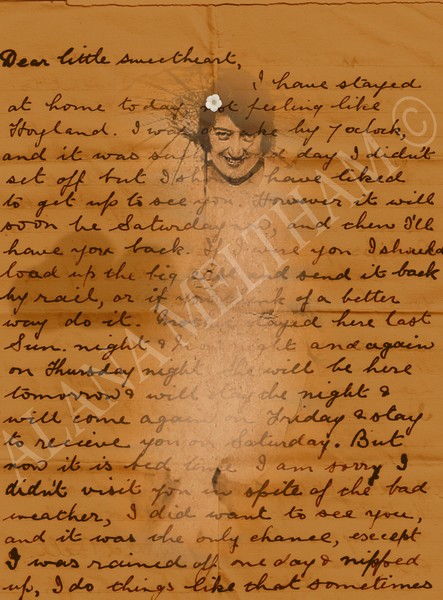 Dear little sweetheart,
I have stayed
at home today not feeling like
Hoyland. I was awake by 7 oclock,
and it was such a day I didn't
set off but I should have liked
to get up to see you. However it will
soon be Saturday now, and then I'll
have you back. If I were you I should
load up the big case and send it back
by rail, or if you think of a better
way do it. stayed here last
Sun. night & night and again
on Thursday night. She will be here
tomorrow & will stay the night &
will come again on Friday & stay
to recieve you on Saturday. But
now it is bed time I am sorry I
didn't visit you in spite of the bad
weather, I did want to see you,
and it was the only chance, except
I was rained off one day & nipped
up, I do things like that sometimes
ALANAMELTHAM ©